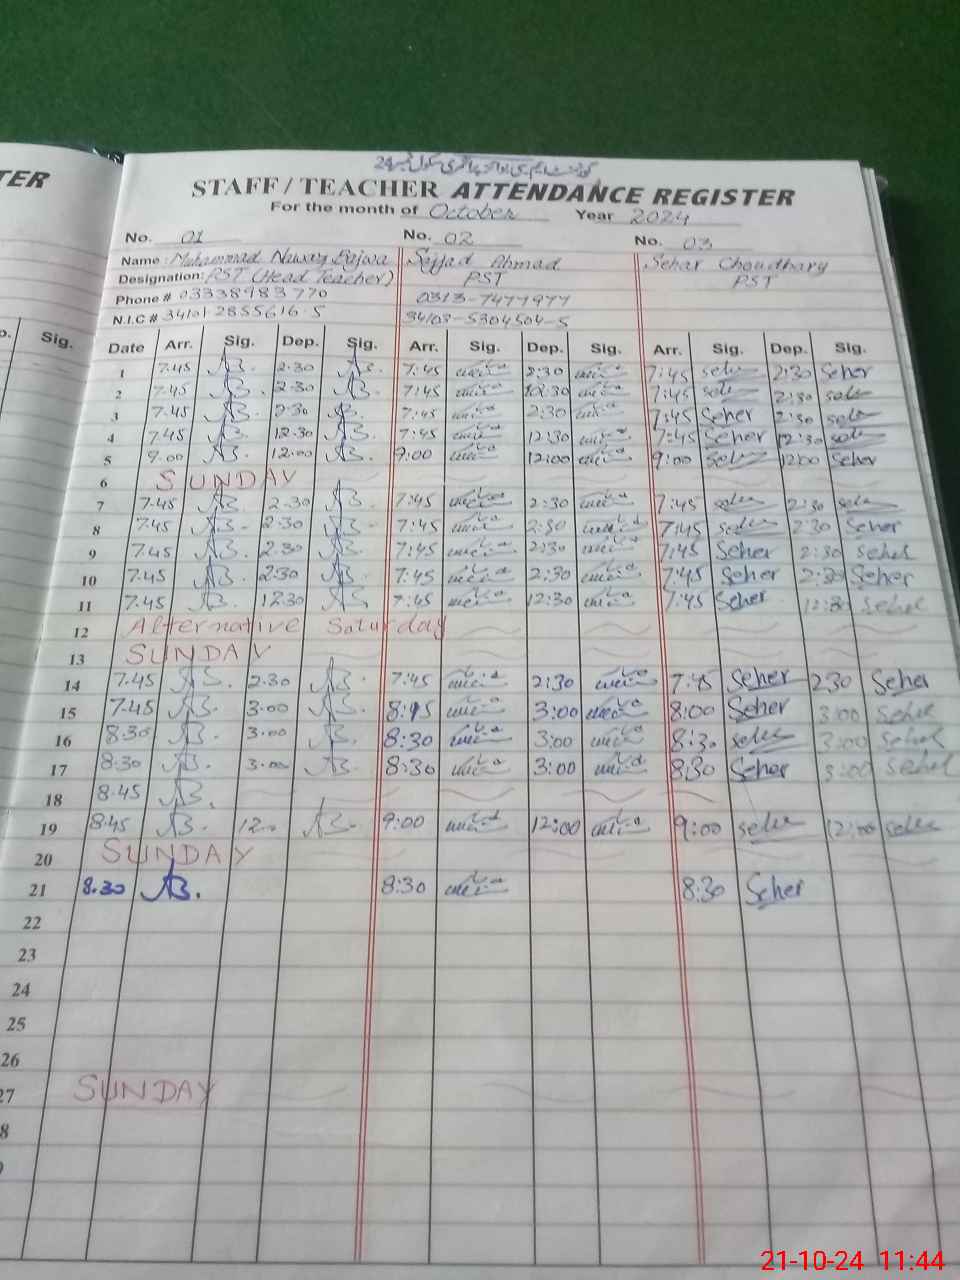 TER
گورنمنٹ ایم سی بوائز پرائمری سکول نمبر 24
STAFF / TEACHER ATTENDANCE REGISTER
For the month of October Year 2024
No. 01 No. 02 No. 03
Name: Muhammad Nawaz Bajwa Sajjad Ahmad Sehar Choudhary
Designation: PST (Head Teacher) PST PST
Phone # 03338983770 0313-7477977
N.I.C # 34101-2855616-5 34103-5304504-5
Sig. Date Arr. Sig. Dep. Sig. Arr. Sig. Dep. Sig. Arr. Sig. Dep. Sig.
1 7.45 AB. 2.30 AB. 7:45 2:30 7:45 2:30 Seher
2 7.45 AB. 2.30 AB. 7:45 2:30 7:45 2:30
3 7.45 AB. 2.30 7:45 2:30 7:45 Seher 2:30
4 7.45 AB. 12.30 AB. 7:45 12:30 7:45 Seher 12:30
5 9.00 AB. 12.00 AB. 9:00 12:00 9:00 12:00 Seher
6 SUNDAY
7 7.45 AB. 2.30 AB. 7:45 2:30 7:45 2:30
8 7.45 AB. 2.30 AB. 7:45 2:30 7:45 2:30 Seher
9 7.45 AB. 2.30 AB. 7:45 2:30 7:45 Seher 2:30 Seher
10 7.45 AB. 2.30 AB. 7:45 2:30 7:45 Seher 2:30 Seher
11 7.45 AB. 12.30 AB. 7:45 12:30 7:45 Seher 12:30 Seher
12 Alternative Saturday
13 SUNDAY
14 7.45 AB. 2.30 AB. 7:45 2:30 7:45 Seher 2:30 Seher
15 7.45 AB. 3.00 AB. 8:15 3:00 8:00 Seher 3:00 Seher
16 8.30 AB. 3.00 AB. 8:30 3:00 8:30 3:00 Seher
17 8.30 AB. 3.00 AB. 8:30 3:00 8:30 Seher 3:00 Seher
18 8.45 AB.
19 8.45 AB. 12. AB. 9:00 12:00 9:00 12:00
20 SUNDAY
21 8.30 AB. 8:30 8:30 Seher
22
23
24
25
26
27 SUNDAY
8
21-10-24 11:44